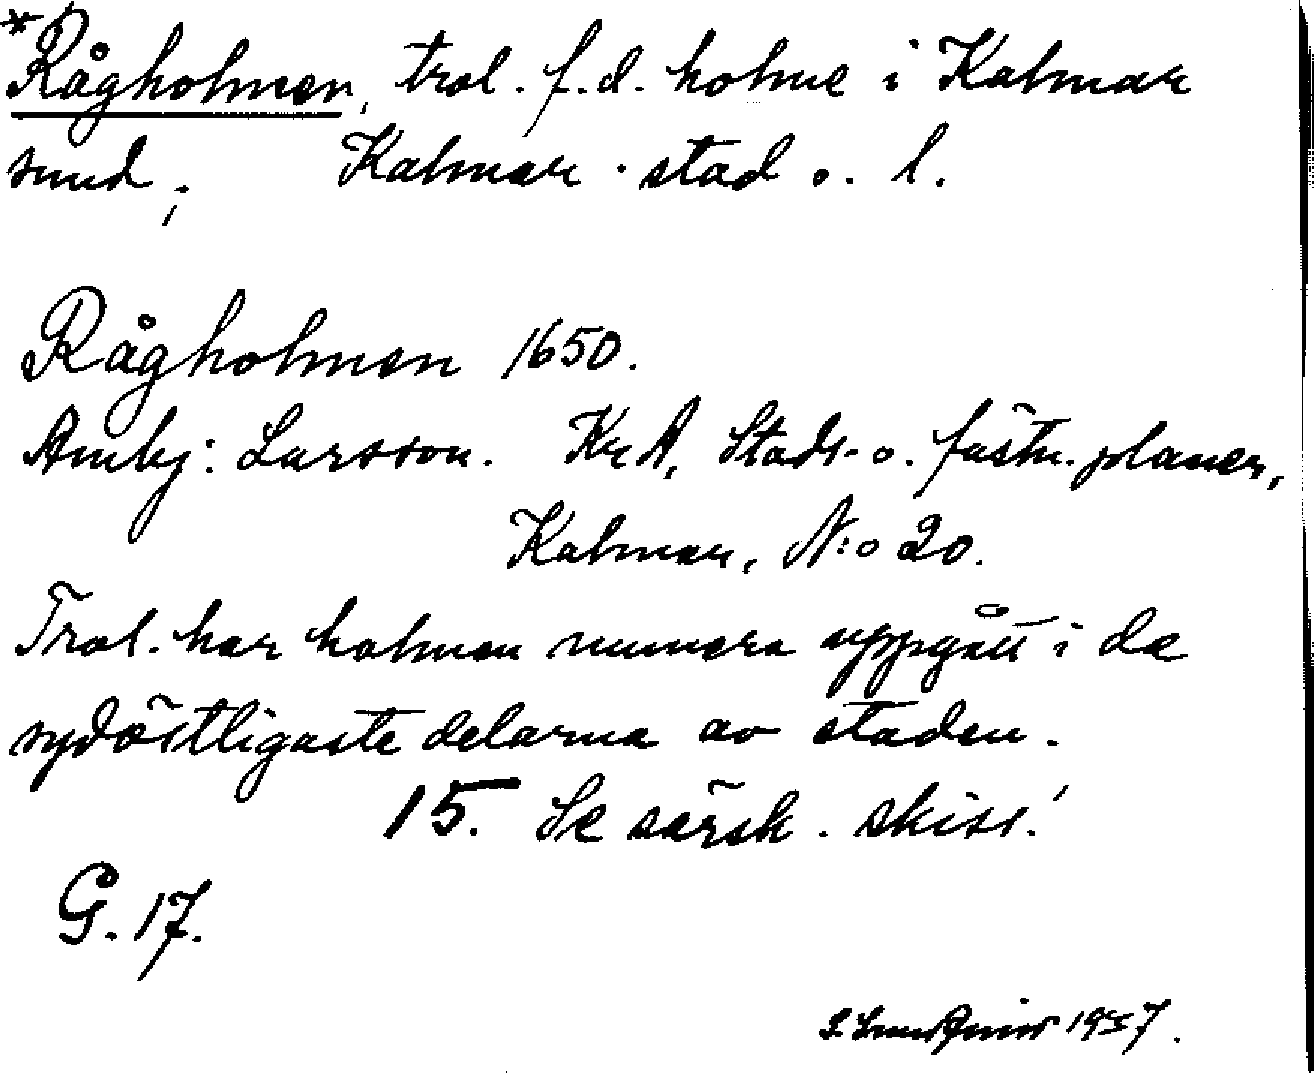 *Rågholmen, trol. f.d. holme i Kalmar
sund; Kalmar stad o. l.
Rågholmen 1650.
Ambj: Larsson. KrA, Stads- o. fästn. planer,
Kalmar, N:o 20.
Trol. har holmen numera uppgått i de
sydöstligaste delarna av staden.
15. Se särsk. skiss!
G. 17.
1957.